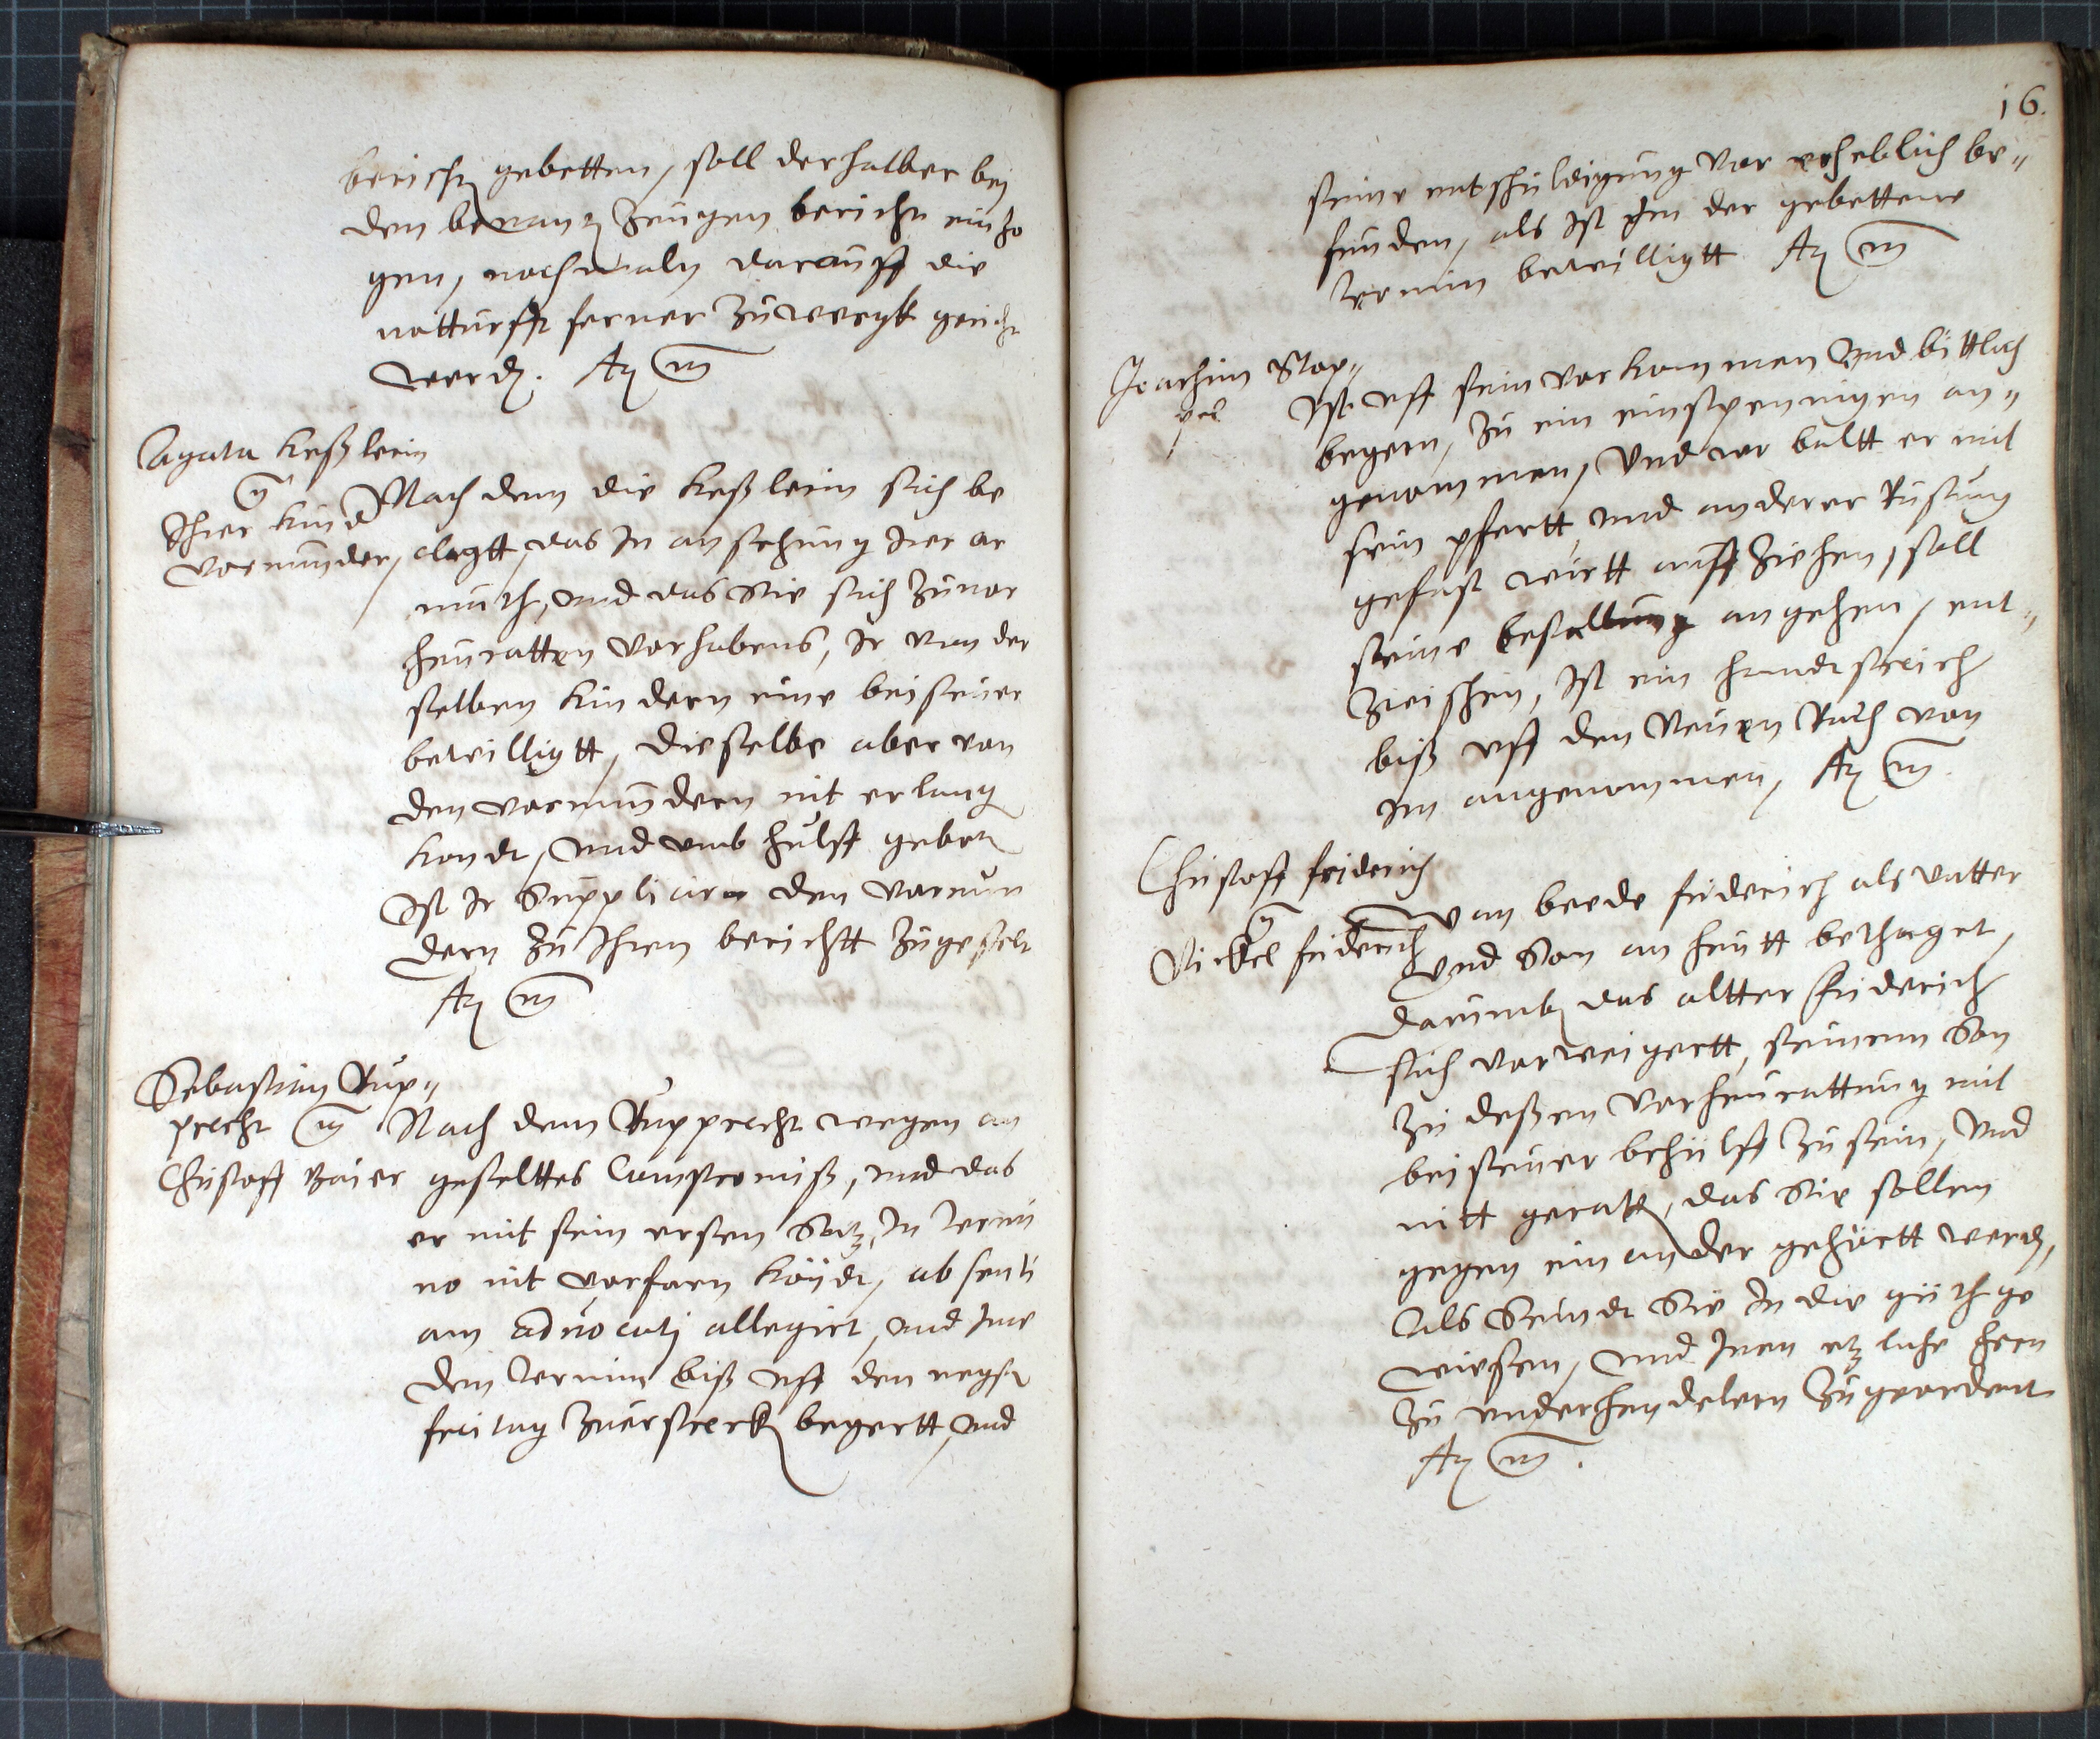 bericht gebetten, soll derhalber bei
den benantt Zeugen bericht einzo
gen, nochmaln darauff die
notturfft ferner zuwergk gericht
werd. Act m
Agata Keßlerin
Ihrer Kind
Vormunder,
Nach dem die Keßlerin sich be
clagtt, das In ansehung Irer ar
muth, und das Sie sich zuvor
heuratten vorhabens, Ir von der
selben kindern eine beisteuer
bewilligtt, dieselbe aber von
den vormundern nit erlang
kondt, und umb hulff gebet
Ist Ir Supplicirn den vormun
dern zu Ihren berichtt zugestelt
Act m
Sebastian Rup„
precht
Christoff Baier
Nach dem Rupprecht wegen an
gestelttes Compromiß, und das
er mit sein ersten Satz, In termi
no nit vorfarn köndt, absenti
am aduocati allegirt, und Ime
den termin biß uff den negst
freitag zuerstreck begertt, und
16.
seine entschuldigung vor erheblich be„
funden, als Ist Im der gebettene
termin bewilligtt Act m
Joachim Stop„
pel
Ist uff sein vorkommen und bittlich
begern, zu ein einspennigen an„
genommen, und wo baltt er mit
sein pfertt und anderer Rustung
gefast wurtt auffziehen, soll
seine bestallung angehen, ent„
zwischen, Ist ein handtstreich
biß uff den Neuen Rath von
Im angenommen, Act m
Christoff friderich
Nickel friderich
Von beede friderich als vatter
und Son an heutt bethaget,
darumb das altter friderich
sich vorweigertt, seinem Son
zu deßen vorheurattung mit
beisteuer behulff zu sein, und
nitt geratt, das Sie sollen
gegen einander gehörtt werd,
als Seindt Sie In die guth ge
wiesen, und Inen etzliche hern
zu underhendelern zugeordent
Act m.